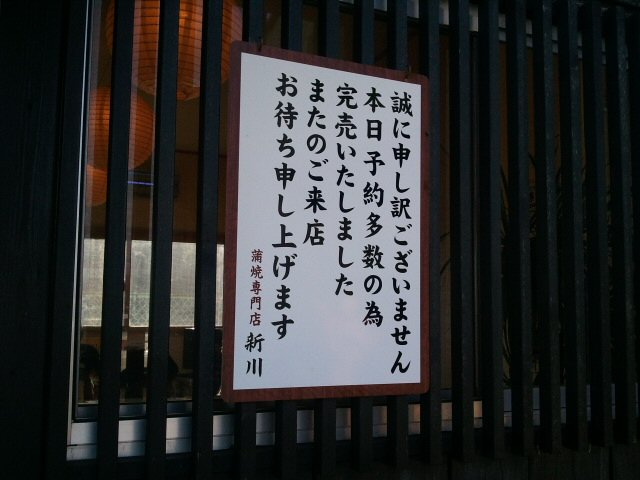 誠に申し訳ございません
本日予約多数の為
完売いたしました
またのご来店
お待ち申し上げます
蒲焼専門店 新川